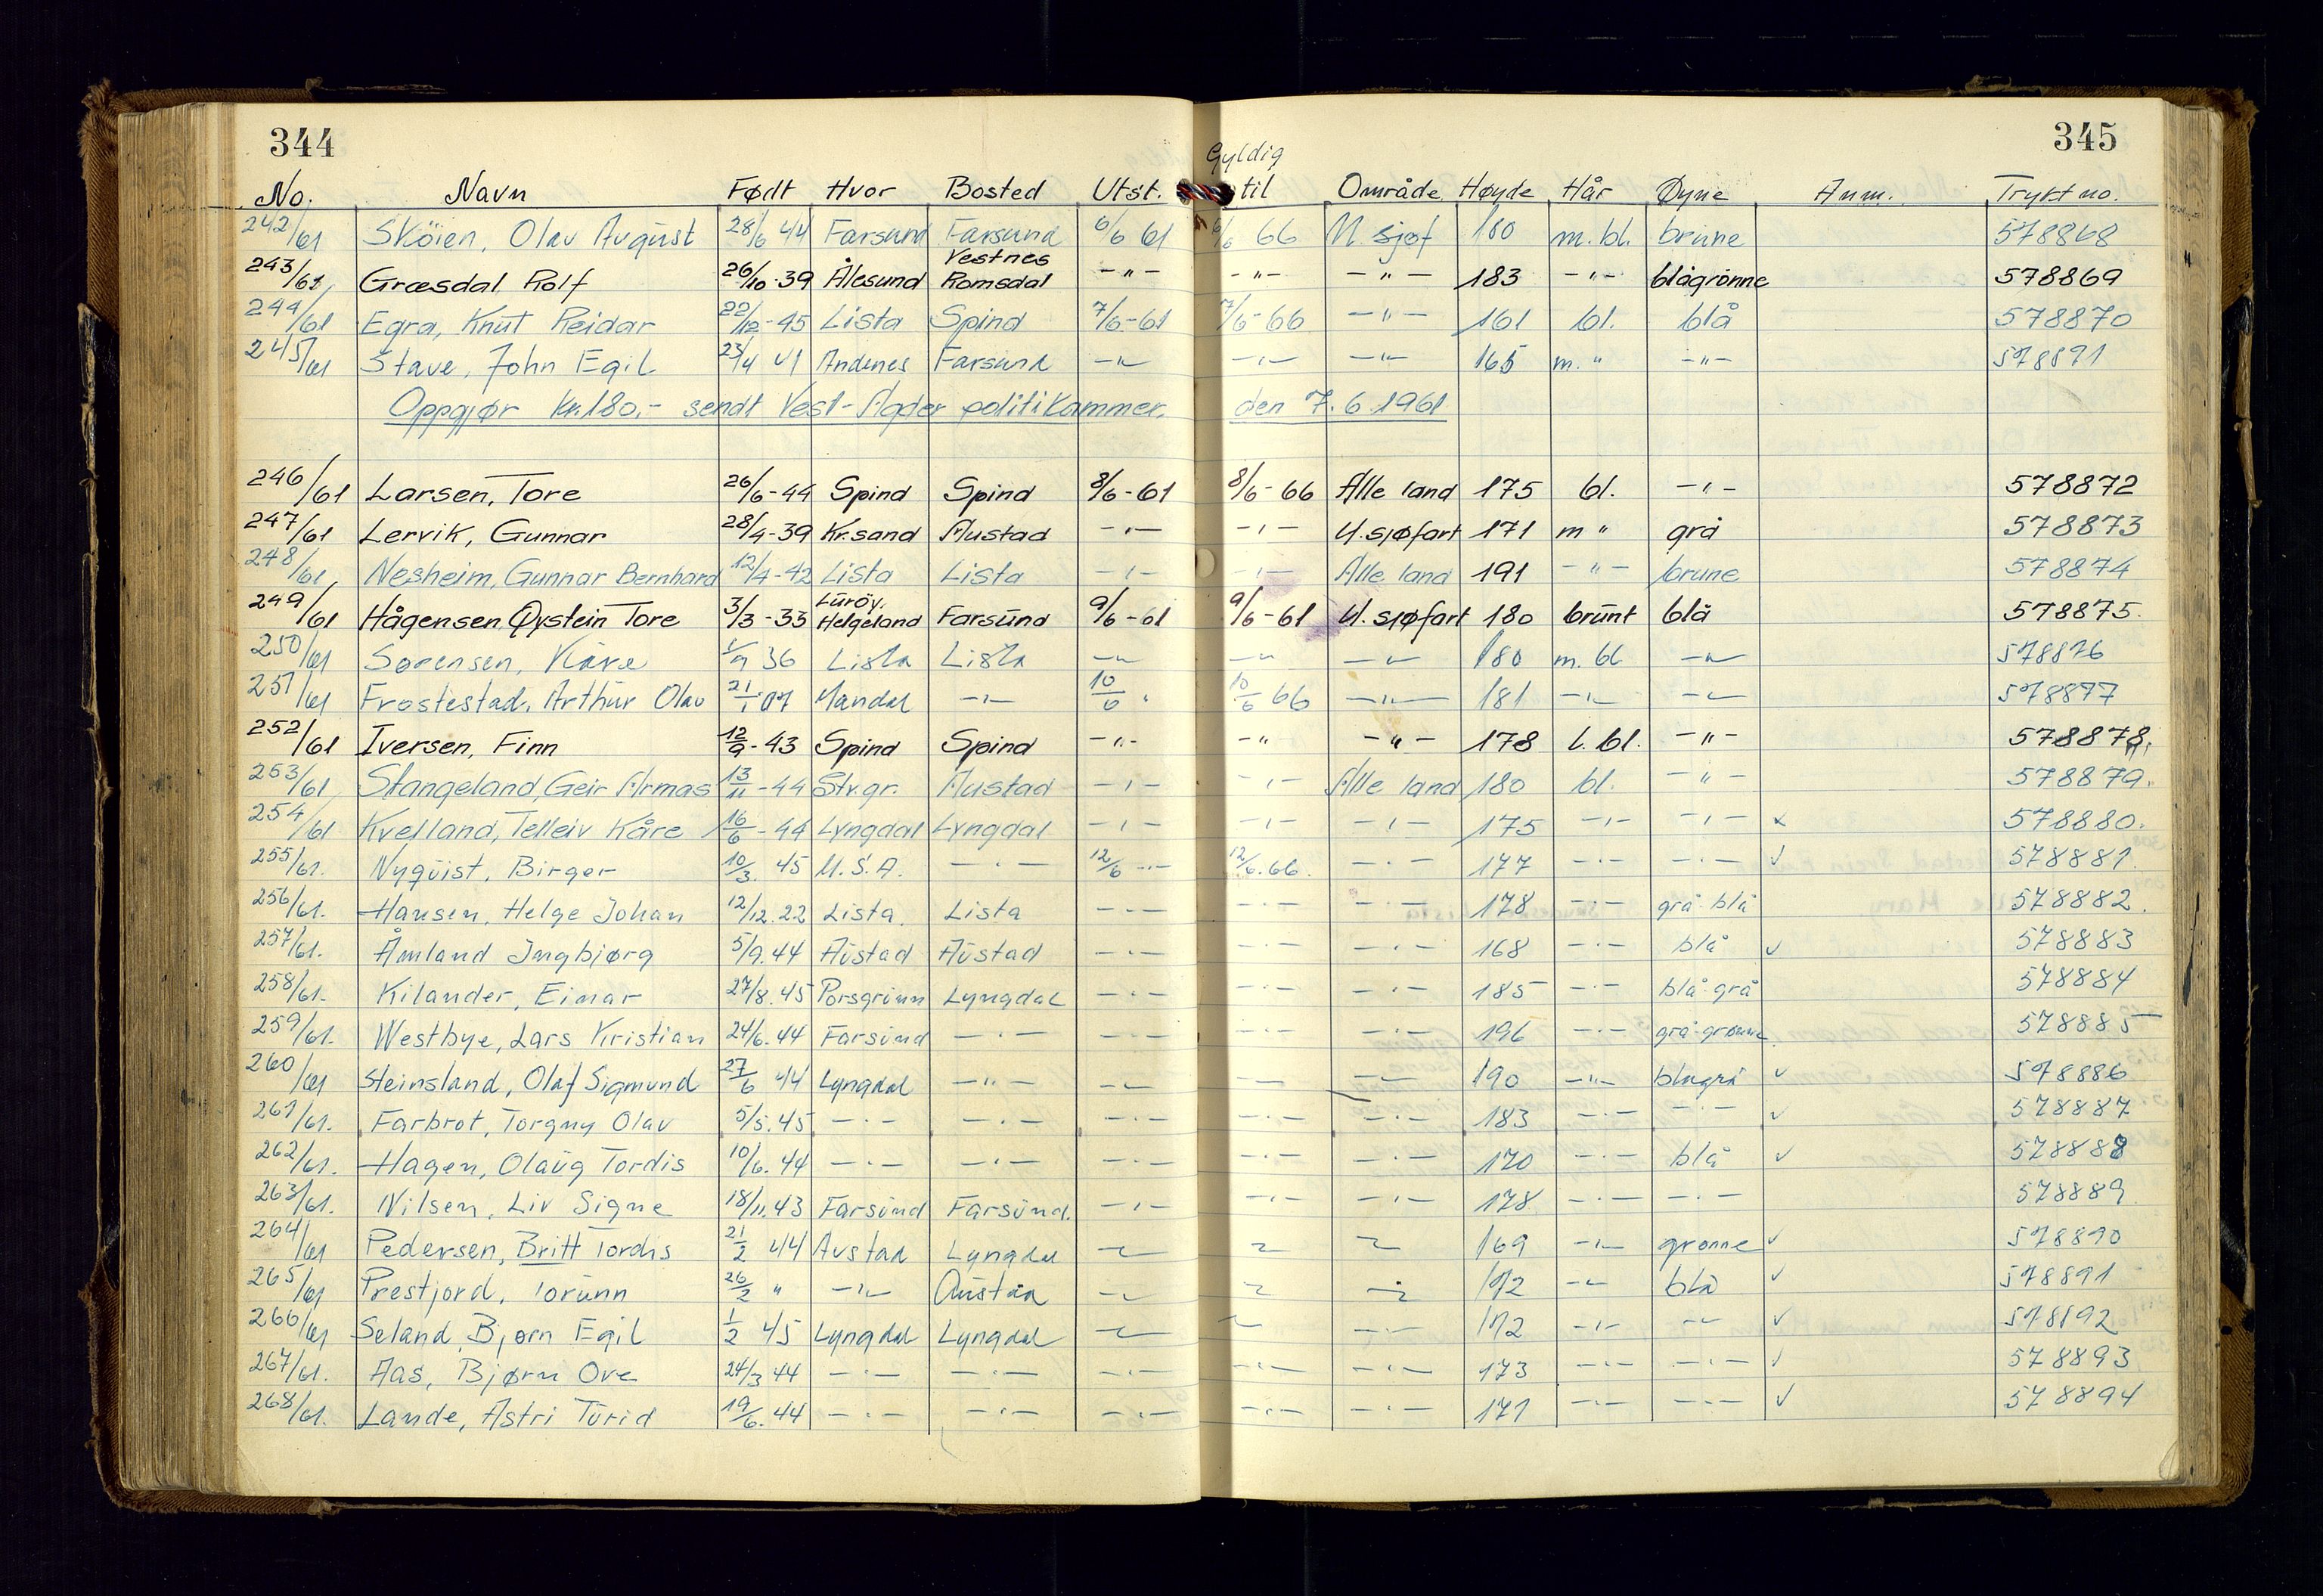 344
345
Gyldig
No. Navn Født Hvor Bosted Utst. til Område Høyde Hår Øyne Anm. Trykt no.
242/61 Sköien, Olav August 28/6 44 Farsund Farsund 6/6 61 6/6 66 U. sjøf 180 m. bl. brune 578868
Vestnes
243/61 Græsdal Rolf 26/10-39 Ålesund Romsdal -"- -"- -"- 183 -"- blågrønne 578869
244/61 Egra, Knut Reidar 22/12-45 Lista Spind 7/6-61 7/6-66 -"- 161 bl. blå 578870
245/61 Stave, John Egil 23/4 41 Andenes Farsund -"- -"- -"- 165 m. " -"- 578871
Oppgjør kr. 180,- sendt Vest-Agder politikammer den 7.6.1961
246/61 Larsen, Tore 26/6-44 Spind Spind 8/6-61 8/6-66 Alle land 175 bl. -"- 578872
247/61 Lervik, Gunnar 28/4-39 Kr.sand Austad -"- -"- U. sjøfart 171 m " grå 578873
248/61 Nesheim, Gunnar Bernhard 12/4-42 Lista Lista -"- -"- Alle land 191 -"- brune 578874
Luröy.
249/61 Hågensen Øystein Tore 3/3-33 Helgeland Farsund 9/6-61 9/6-61 U. sjøfart 180 brunt blå 578875.
250/61 Sørensen, Kåre /9 36 Lista Lista -"- -"- -"- 180 m. bl -"- 578876
251/61 Frostestad, Arthur Olav 21/1 07 Mandal -"- 10/6 " 10/6 66 -"- 181 -"- -"- 578877
252/61 Iversen, Finn 12/9-43 Spind Spind -"- -"- -"- 178 l. bl. -"- 578878.
253/61 Stangeland, Geir Armas 13/11-44 Stv.gr. Austad -"- -"- Alle land 180 bl. -"- 578879.
254/61 Kvelland, Telleiv Kåre 16/6-44 Lyngdal Lyngdal -"- -"- -"- 175 -"- -"- x 578880.
255/61. Nyquist, Birger 10/3. 45 U.S.A. -"- 12/6 -"- 12/6.66. -"- 177 -"- -"- ✓ 578881.
256/61. Hansen, Helge Johan 12/12.22 Lista. Lista -"- -"- -"- 178 -"- grå-blå 578882.
257/61. Åmland Ingbjørg 5/9.44 Austad Austad -"- -"- -"- 168 -"- blå ✓ 578883
258/61. Kilander, Einar 27/8.45 Porsgrunn Lyngdal -"- -"- -"- 185 -"- blå-grå 578884
259/61. Westbye, Lars Kristian 24/6.44 Farsund -"- -"- -"- -"- 196 -"- grå-grønne. 578885
260/61 Steinsland, Olaf Sigmund 27/6 44 Lyngdal -"- -"- -"- -"- 190 -"- blågrå ✓ 578886
261/61. Farbrot, Torgny Olav 5/5.45 -"- -"- -"- -"- -"- 183 -"- -"- ✓ 578887
262/61. Hagen, Olaug Tordis 10/6.44 -"- -"- -"- -"- -"- 170 -"- blå ✓ 578888
263/61. Nilsen, Liv Signe 18/11.43 Farsund Farsund. -"- -"- -"- 178 -"- -"- 578889
264/61 Pedersen, Britt Tordis 21/2 44 Austad Lyngdal -"- -"- -"- 169 -"- grønne ✓ 578890
265/61 Prestjord, Torunn 26/2 " -"- Austad -"- -"- -"- 172 -"- blå ✓ 578891
266/61 Seland, Bjørn Egil 1/2 45 Lyngdal Lyngdal -"- -"- -"- 172 -"- -"- ✓ 578892
267/61. Aas, Bjørn Ove 24/3 44 -"- -"- -"- -"- -"- 173 -"- -"- ✓ 578893
268/61. Lande, Astri Turid 19/6.44 -"- -"- -"- -"- -"- 171 -"- -"- ✓ 578894